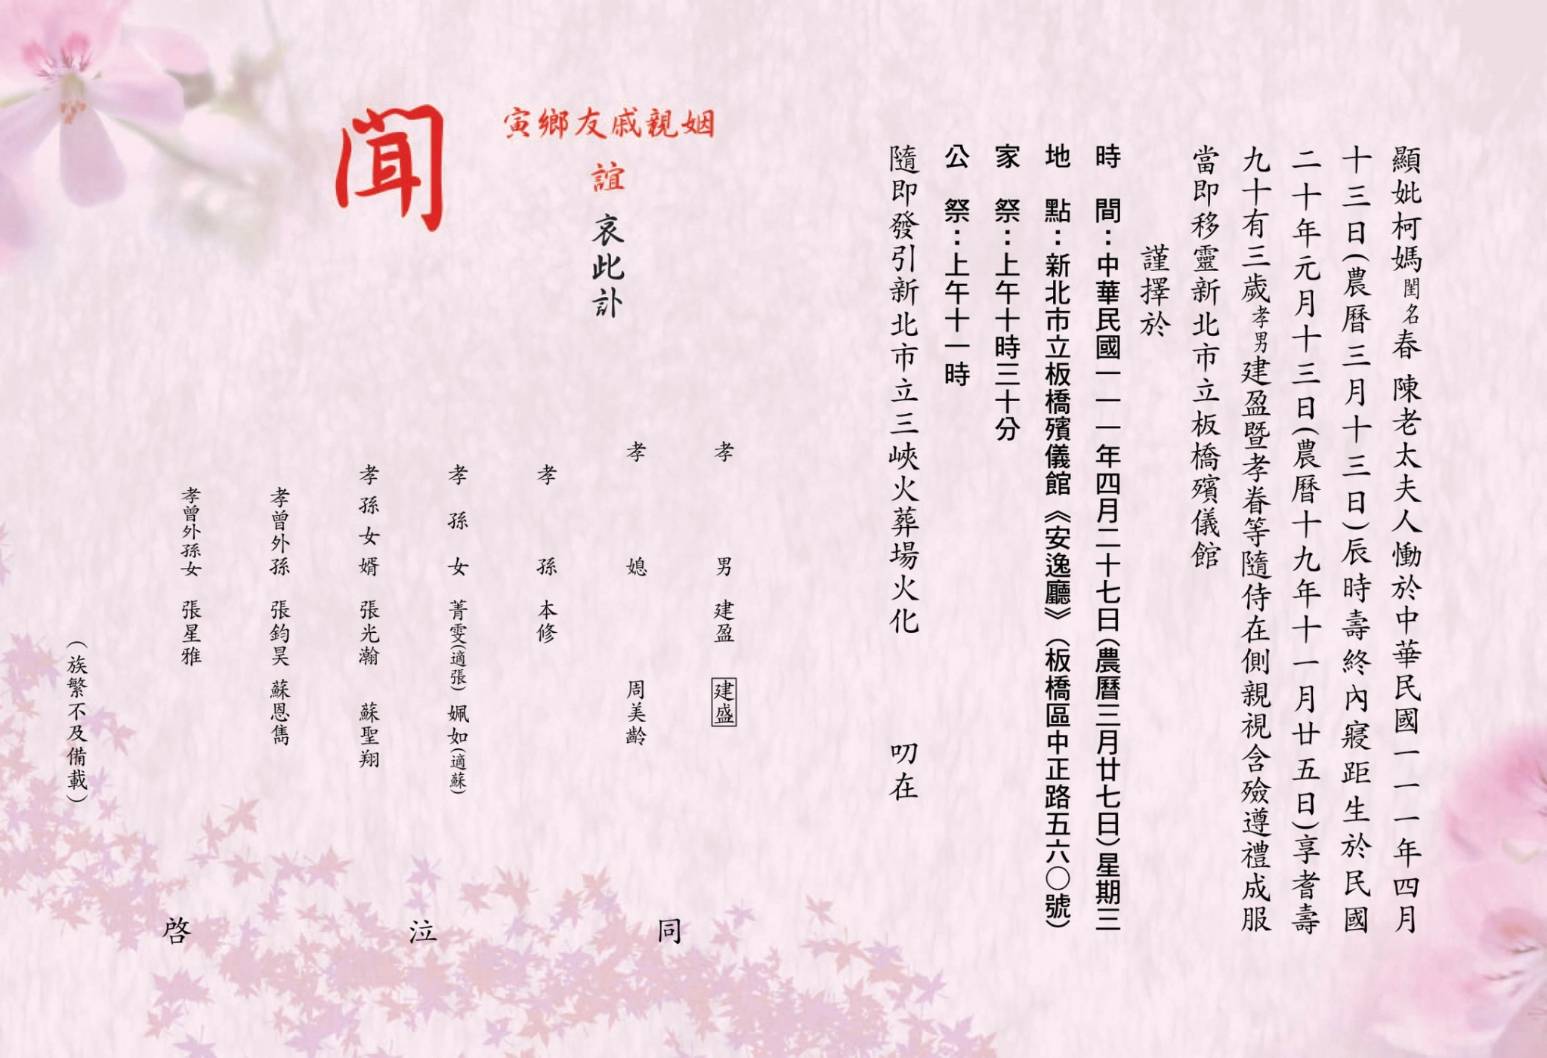 顯妣柯媽閨名春 陳老太夫人慟於中華民國一一一年四月
十三日(農曆三月十三日)辰時壽終內寢距生於民國
二十年元月十三日(農曆十九年十一月廿五日)享耆壽
九十有三歲孝男建盈暨孝眷等隨侍在側親視含殮遵禮成服
當即移靈新北市立板橋殯儀館
謹擇於
時 間：中華民國一一一年四月二十七日(農曆三月廿七日)星期三
地 點：新北市立板橋殯儀館《安逸廳》（板橋區中正路五六○號）
家 祭：上午十時三十分
公 祭：上午十一時
隨即發引新北市立三峽火葬場火化 叨在
姻親戚友鄉寅
誼
哀此訃
聞
孝男 建盈 建盛
孝媳 周美齡
孝孫 本修
孝孫女 菁雯(適張) 姵如(適蘇)
孝孫女婿 張光瀚 蘇聖翔
孝曾外孫 張鈞昊 蘇恩雋
孝曾外孫女 張星雅
（族繁不及備載）
同 泣 啓